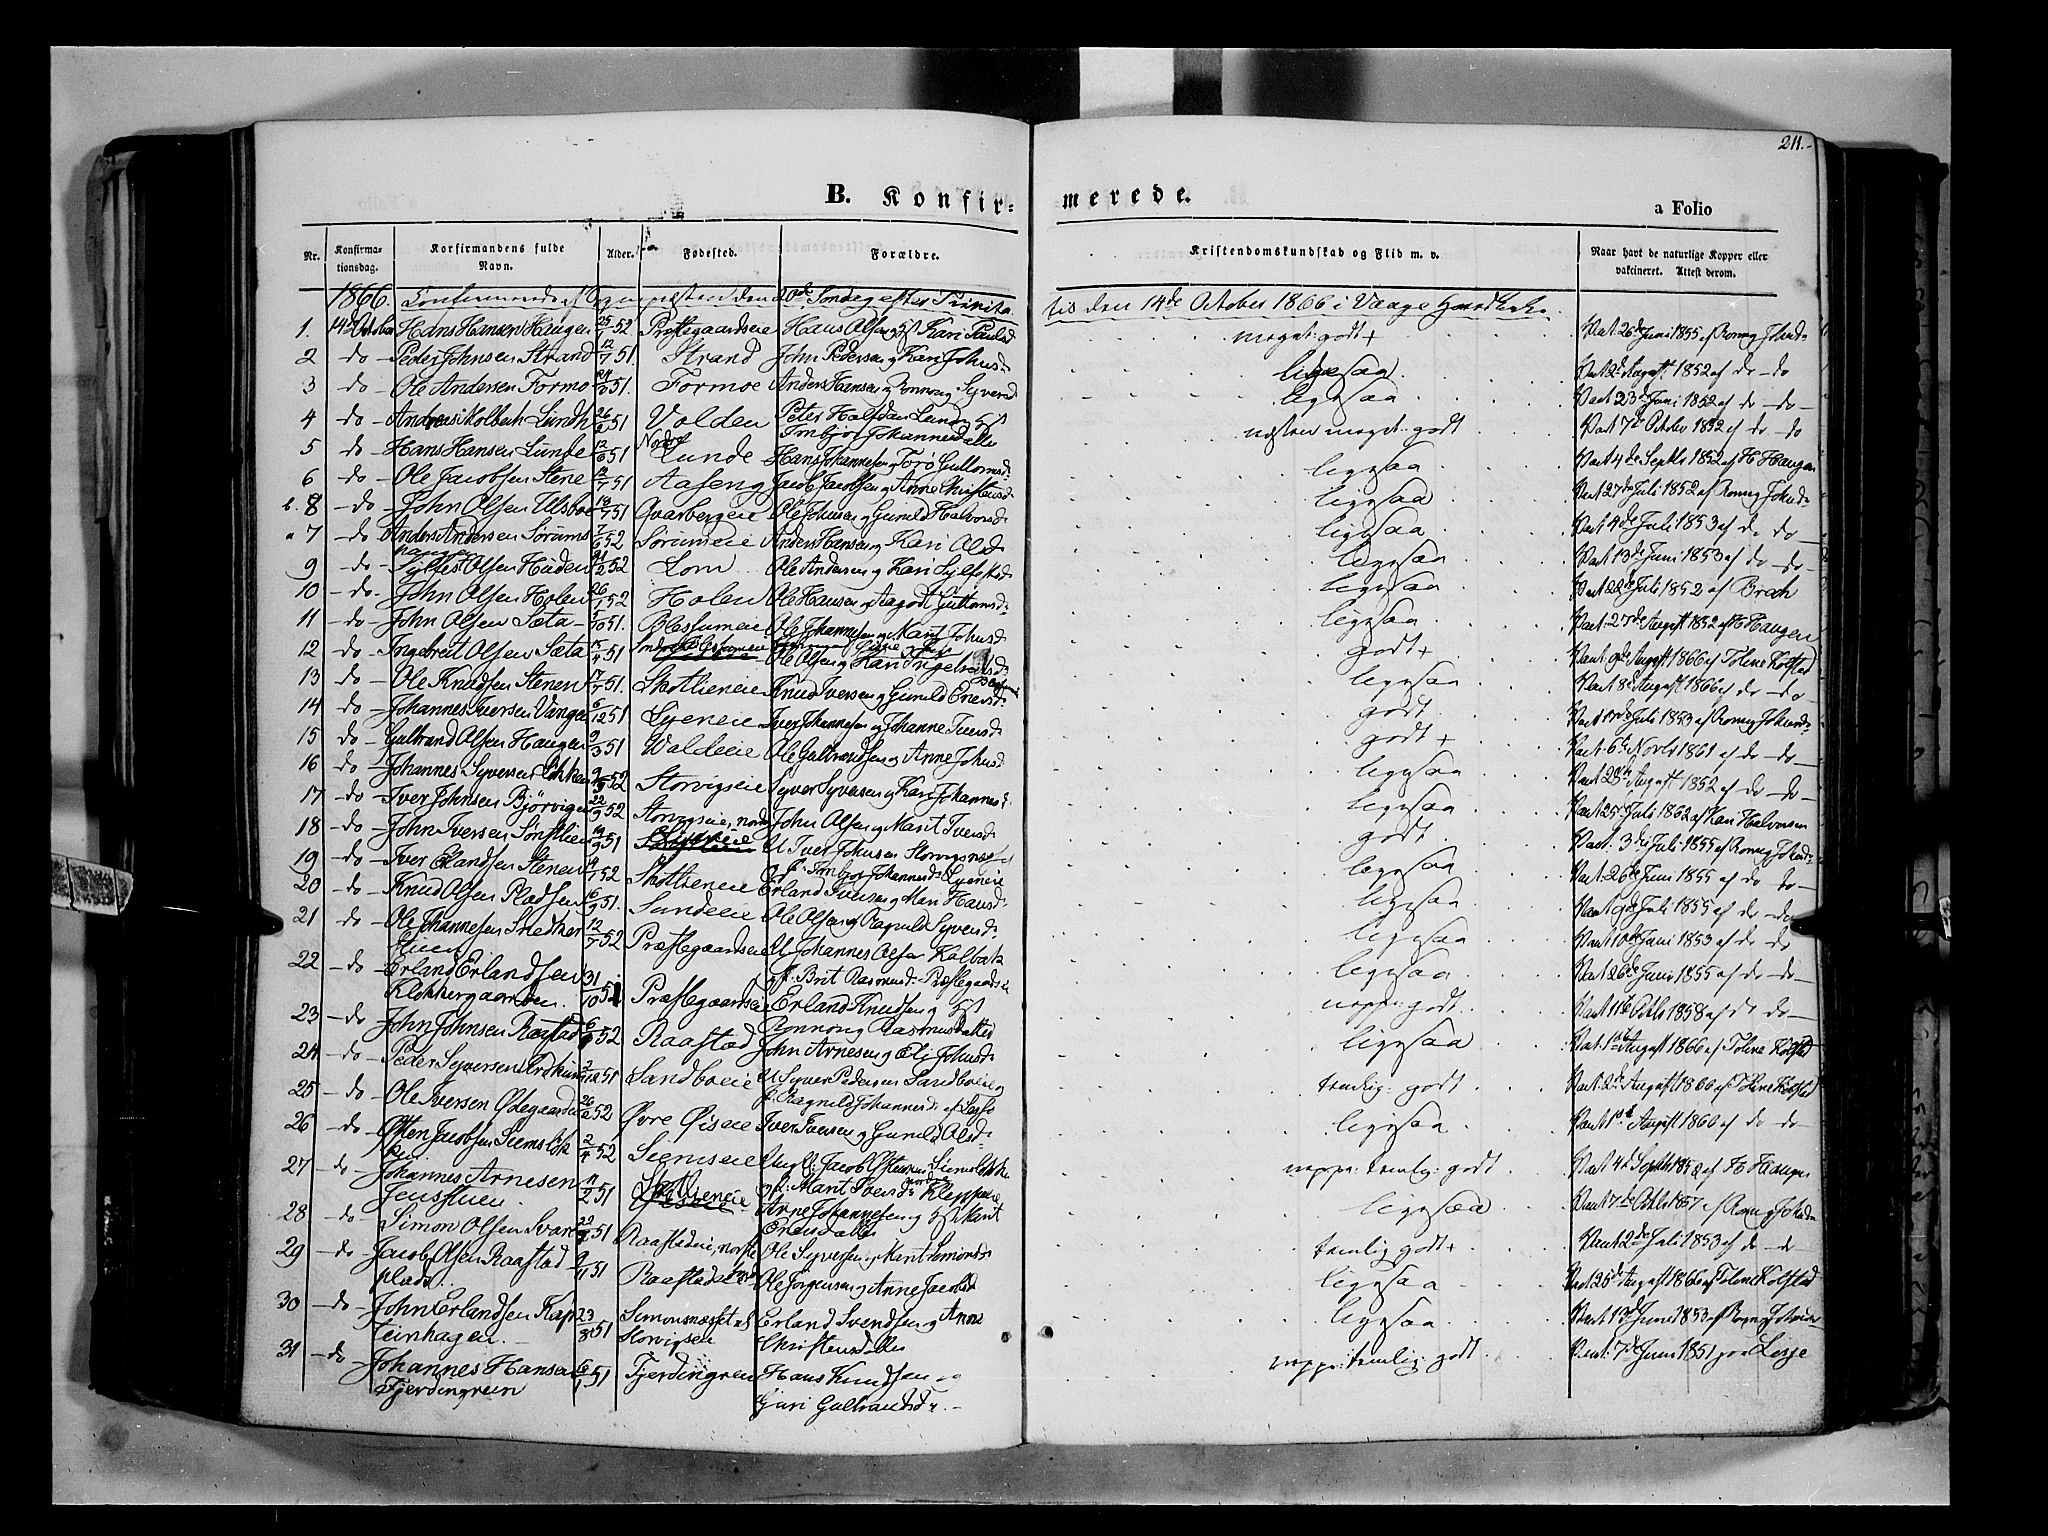 211.
B. Konfir= merede.
a Folio
Nr. Konfirma-tionsdag. Korfirmandens fulde Navn. Alder. Fødested. Forældre. Kristendomskundskab og Flid m. v. Naar havt de naturlige Kopper eller vakcineret. Attest derom.
1866. Søndag efter Trinita tis den 14de October 1866 i Vaage
1. 14de October Hans Hansen Haugen 52 Præstegaardseie Hans Olsen og Kari Paulsd meget godt + Vact. 26de Juni 1855 af Romug Johnsd:
2 -do- Peder Johnsen Strand 12/7 51. Strand John Pedersen og Kari Johnsd: ligesaa Vact 2d August 1852 af do - do
3 -do- Ole Andersen Formo 51. Formoe Anders Hansen og Ronnoug Syversd ligesaa Vact 23de Juni 1852 af do - do -
4 -do Lundh 26/6 51 Volden Peter Halfdan Lundh og Imbjør Johannesdatter næsten meget godt Vact 7de October 1852 af do - do
5 -do Hans Hansen Lunde 51 Nordre Lunde Hans Johannesen og Torø Guttormsd: ligesaa Vact 4de Septbr 1852 af H Haugen
6 -do Ole Jacobsen Stene 51 Aaseng Jacob Jacobsen og Anne Christensd: ligesaa Vact 27de Juli 1852 af Romug Johnsd:
b. 8 -do John Olsen Ulsboe 51 Qvarbergeie Ole Johnsen og Gunild Halvorsd: ligesaa Vact 4de Juli 1853 af do do -
a 7 -do Anders Andersen Sørums haugen 52 Sørumeie Anders Hansen og Kari Olsd: ligesaa Vact 13de Juni 1853 af do - do -
9 -do- Sylfest Olsen Heiden 52 Lom Ole Andersen og Kari Sylfestsd: ligesaa Vact 22de Juli 1852 af
10 -do- John Olsen Holen 26/1 52 Holen Ole Hansen og Aagodt Guttormsd: ligesaa Vact 27de August 1852 af H Haugen
11 -do- John Olsen Sæta 5/10 51. Blessumeie Ole Johannesen og Marit Johnsd: godt + Vact. 9de August 1866 af Toline Kolstad
12 -do- Ingebret Olsen Sæta 51 Ole Olsen og Kari Ingebretsd: ligesaa Vact 8de August 1866 af do - do
13 -do- Ole Knudsen Stenen 51. Skotlieneie Knud Iversen og Gunild Enersd: godt Juli 1853 af Romug Johnsd:
14 -do- Johannes Iversen Vangen 6/12 51 Syeneie Iver Johannesen og Johanne Iversd: godt + Vact. 6te Novbr 1861 af do - do -
15 -do- Gulbrand Olsen Haugen 9/3 51 Valdeeie Ole Gulbrandsen og Anne Johnsd: ligesaa Vact 28de August 1852 af do - do -
16 -do- Johannes Syversen Løkken 52 Storvigseie Syver Syversen og Kari Johannesd: ligesaa Vact 25de Juli 1862 af Kari Halvorsen
17 -do- Iver Johnsen Bjørvigen 22/9 52 Storvigseie, nordre John Olsen og Marit Iversd: godt Vact. 3de Juli 1855 af Romug Johnsd:
18 -do- John Iversen Sønstlien 51 U Iver Johnsen Storvigsnæs og P. Imbjør Johannesd: Syeneie ligesaa Vact. 26de Juni 1855 af do do -
19 -do- Iver Erlandsen Stenen 52 Skotlieneie Erland Iversen og Mari Hansd: ligesaa Vact 9de Juli 1855 af do - do
20 -do- Knud Olsen Pladsen 16/9 51. Sandeeie Ole Olsen og Ragnild Syversd: ligesaa Vact 10de Juni 1853 af do - do
21 -do- Ole Johannesen Snedker Stuen 12/7 52 Præstegaardseie U Johannes Olsen Kolbak og P. Brit Rasmusd: Præstegaardseie ligesaa Vact 26de Juni 1855 af do - do -
22 -do- Erland Erlandsen Klokkergaarden. 31/10 51 Præstegaardseie Erland Knudsen og Ronnoug Rasmusdatter neppe godt Vact 11te Octbr 1858 af do do -
23 -do John Johnsen Raastad 52 Raastad John Arnesen og Eli Johnsd: ligesaa Vact. 1ste August 1866 af Toline Kolstad
24 -do- Peder Syversen 51 Sandboeie U Syver Pedersen Sandboeie og P. Ragnild Johannesd: af Lesje temlig: godt Vact. 2de August 1866 af Toline Kolstad
25 -do- Ole Iversen Ødegaarden 52 Øvre Øiseie Iver Iversen og Gunild Olsd: ligesaa Vact 1ste August 1866 af do - do -
26 -do- Østen Jacobsen Siemsløk ken 2/4 52 Siemseie Ungk: Jacob Østensen Siemsløkken og P. Marit Iversd: Kleppeeie neppe temlig: godt Vact 4de Septbr 1852 af H Haugen
27 -do- Johannes Arnesen Jenstuen 11/2 51 Arne Johannesen og Marit Enersdatter ligesaa Vact 7de Octbr 1857 af Romug Johnsd:
28 -do- Simon Olsen Svare 51 Raastadeie, nordre Ole Syversen og Marit Simonsd: temlig godt + Vact 2de Juli 1853 af do - do
29 -do- Jacob Olsen Raastad plads. 9/11 51 Raastadeie Ole Jørgensen og Anne Jacobsd ligesaa Vact. 26de August 1866 af Toline Kolstad
30 -do- John Erlandsen Kap teinhagen. 23/3 51 Simonsnæsset u Storvigseie Erland Svendsen og Anne Christensdatter ligesaa Vact 13de Juni 1853 af Romug Johnsd:
31 -do Johannes Hansen Fjerdingreen 6/1 51 Fjerdingreen Hans Knudsen og Guri Gulbrandsd: neppe temlig: godt Vact. 7de Juni 1851 paa Lesje